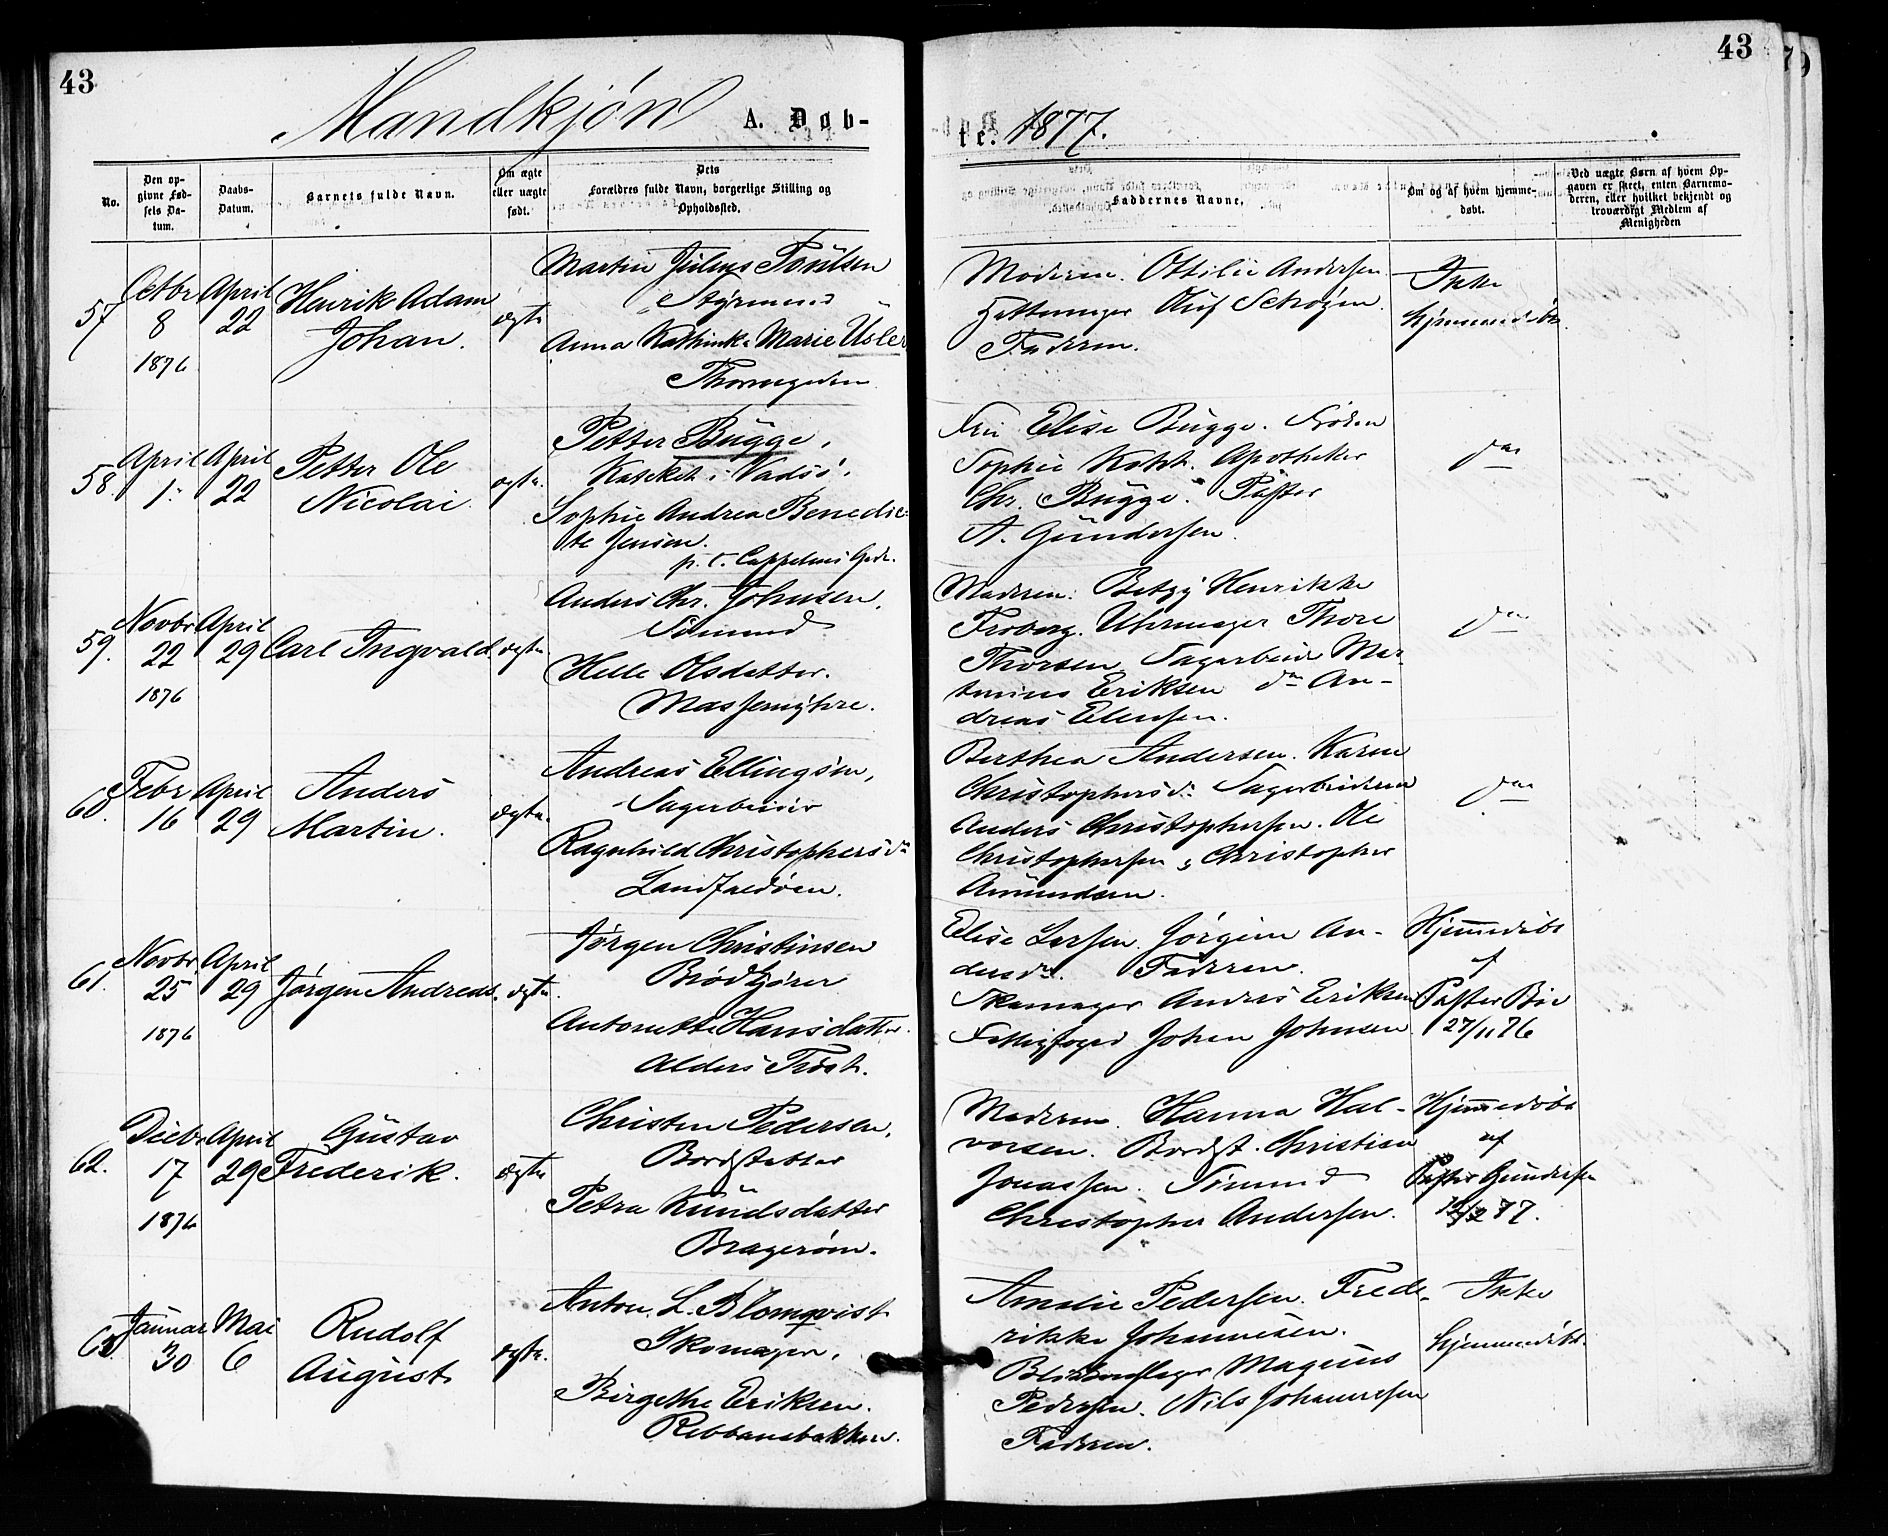 43
43
Mandkjøn A. Døb-
te. 1877.
No.
Den op-
givne Fød-
sels Da-
tum.
Daabs-
Datum.
Barnets fulde Navn.
Om ægte
eller uægte
født.
Dets
Forældres fulde Navn, borgerlige Stilling og
Opholdssted.
Faddernes Navne.
Om og af hvem hjemme-
døbt.
Ved uægte Børn af hvem Op-
gaven er skeet, enten Barnemo-
deren, eller hvilket bekjendt og
troværdigt Medlem af
Menigheden
57
Octbr
8
1876
April
22
Henrik Adam
Johan.
ægte
Martin Julius Poulsen
Styrmand
Anna Kathinka Marie Usler
Thornegaden
Moderen. Ottilie Andersen
Oluf Schrøzen
Faderen.
Ikke
hjemmedøbt.
58.
April
1.
April
22
Petter Ole
Nicolai.
ægte.
Petter Bugge,
Kateket i Vadsö,
Sophie Andrea Benedic-
te Jensen.
p. t. Cappelens Gade.
Fru Elise Bugge. Frøken
Sophie Kokt. Apotheker
Chr. Bugge. Pastor
A. Gundersen.
do
59.
Novbr
22
1876
April
29
Carl Ingvald
ægte
Anders Chr. Johnsen,
Sömand
Helle Olsdatter.
Massemyhre.
Moderen. Betzy Henrikke
Froberg. Uhrmager Thore
Thorsen. Sagarbeider Mar-
tinius Eriksen do An-
dreas Ellensen.
do
60.
Febr
16
April
29
Anders
Martin.
ægte.
Andreas Ellingsen,
Sagarbeider
Ragnhild Christophersdr
Landfaldöen.
Berthea Andersen. Karen
Christophersdr Sagarbeiderne
Anders Christophersen. Ole
Christophersen & Christopher
Amundsen.
do
61.
Novbr
25
1876
April
29
Jørgen Andreas.
ægte.
Jørgen Christinsen
Brödkjører
Antonette Hansdatter.
Alders Tröst.
Elise Larsen. Jörgine An-
dersdr. Faderen.
Skomager Anders Eriksen
Fattigfoged Johan Johnsen
Hjemmedöbt
af
Pastor Böe
27/11 76
62.
Decbr
17
1876
April
29
Gustav
Frederik.
ægte
Christen Pedersen,
Bordstabler
Petra Knudsdatter
Bragerøen.
Moderen. Hanna Hal-
vorsen. Bordst. Christian
Jonassen. Sömand
Christopher Andersen.
Hjemmedöbt
af
Pastor Gundersen
77.
63.
Januar
30
Mai
6
Rudolf
August
ægte.
Anton. L. Blomqvist
Skomager,
Birgethe Eriksen.
Rebbanebakken.
Amalie Pedersen. Frede-
rikke Johannesen.
Blikkenslager Magnus
Pedersen. Nils Johannesen
Faderen.
Ikke
hjemmedöbt.